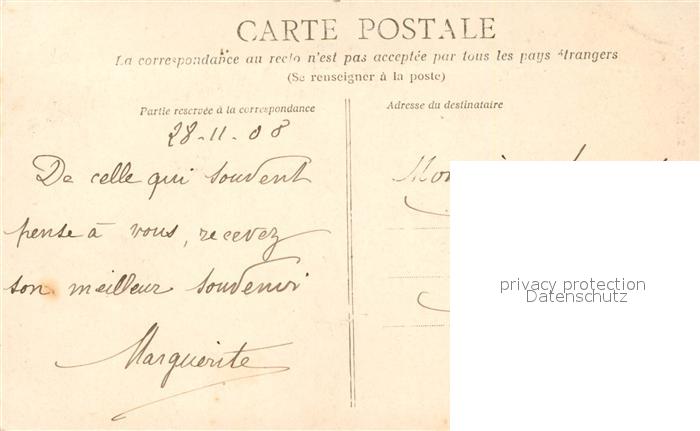 CARTE POSTALE
La correspondance au recto n'est pas acceptée par tous les pays étrangers
(Se renseigner à la poste)
Partie reservée à la correspondance
28-11-08
De celle qui souvent
pense à vous, recevez
son meilleur souvenir
Marguerite
Adresse du destinataire
privacy protection
Datenschutz